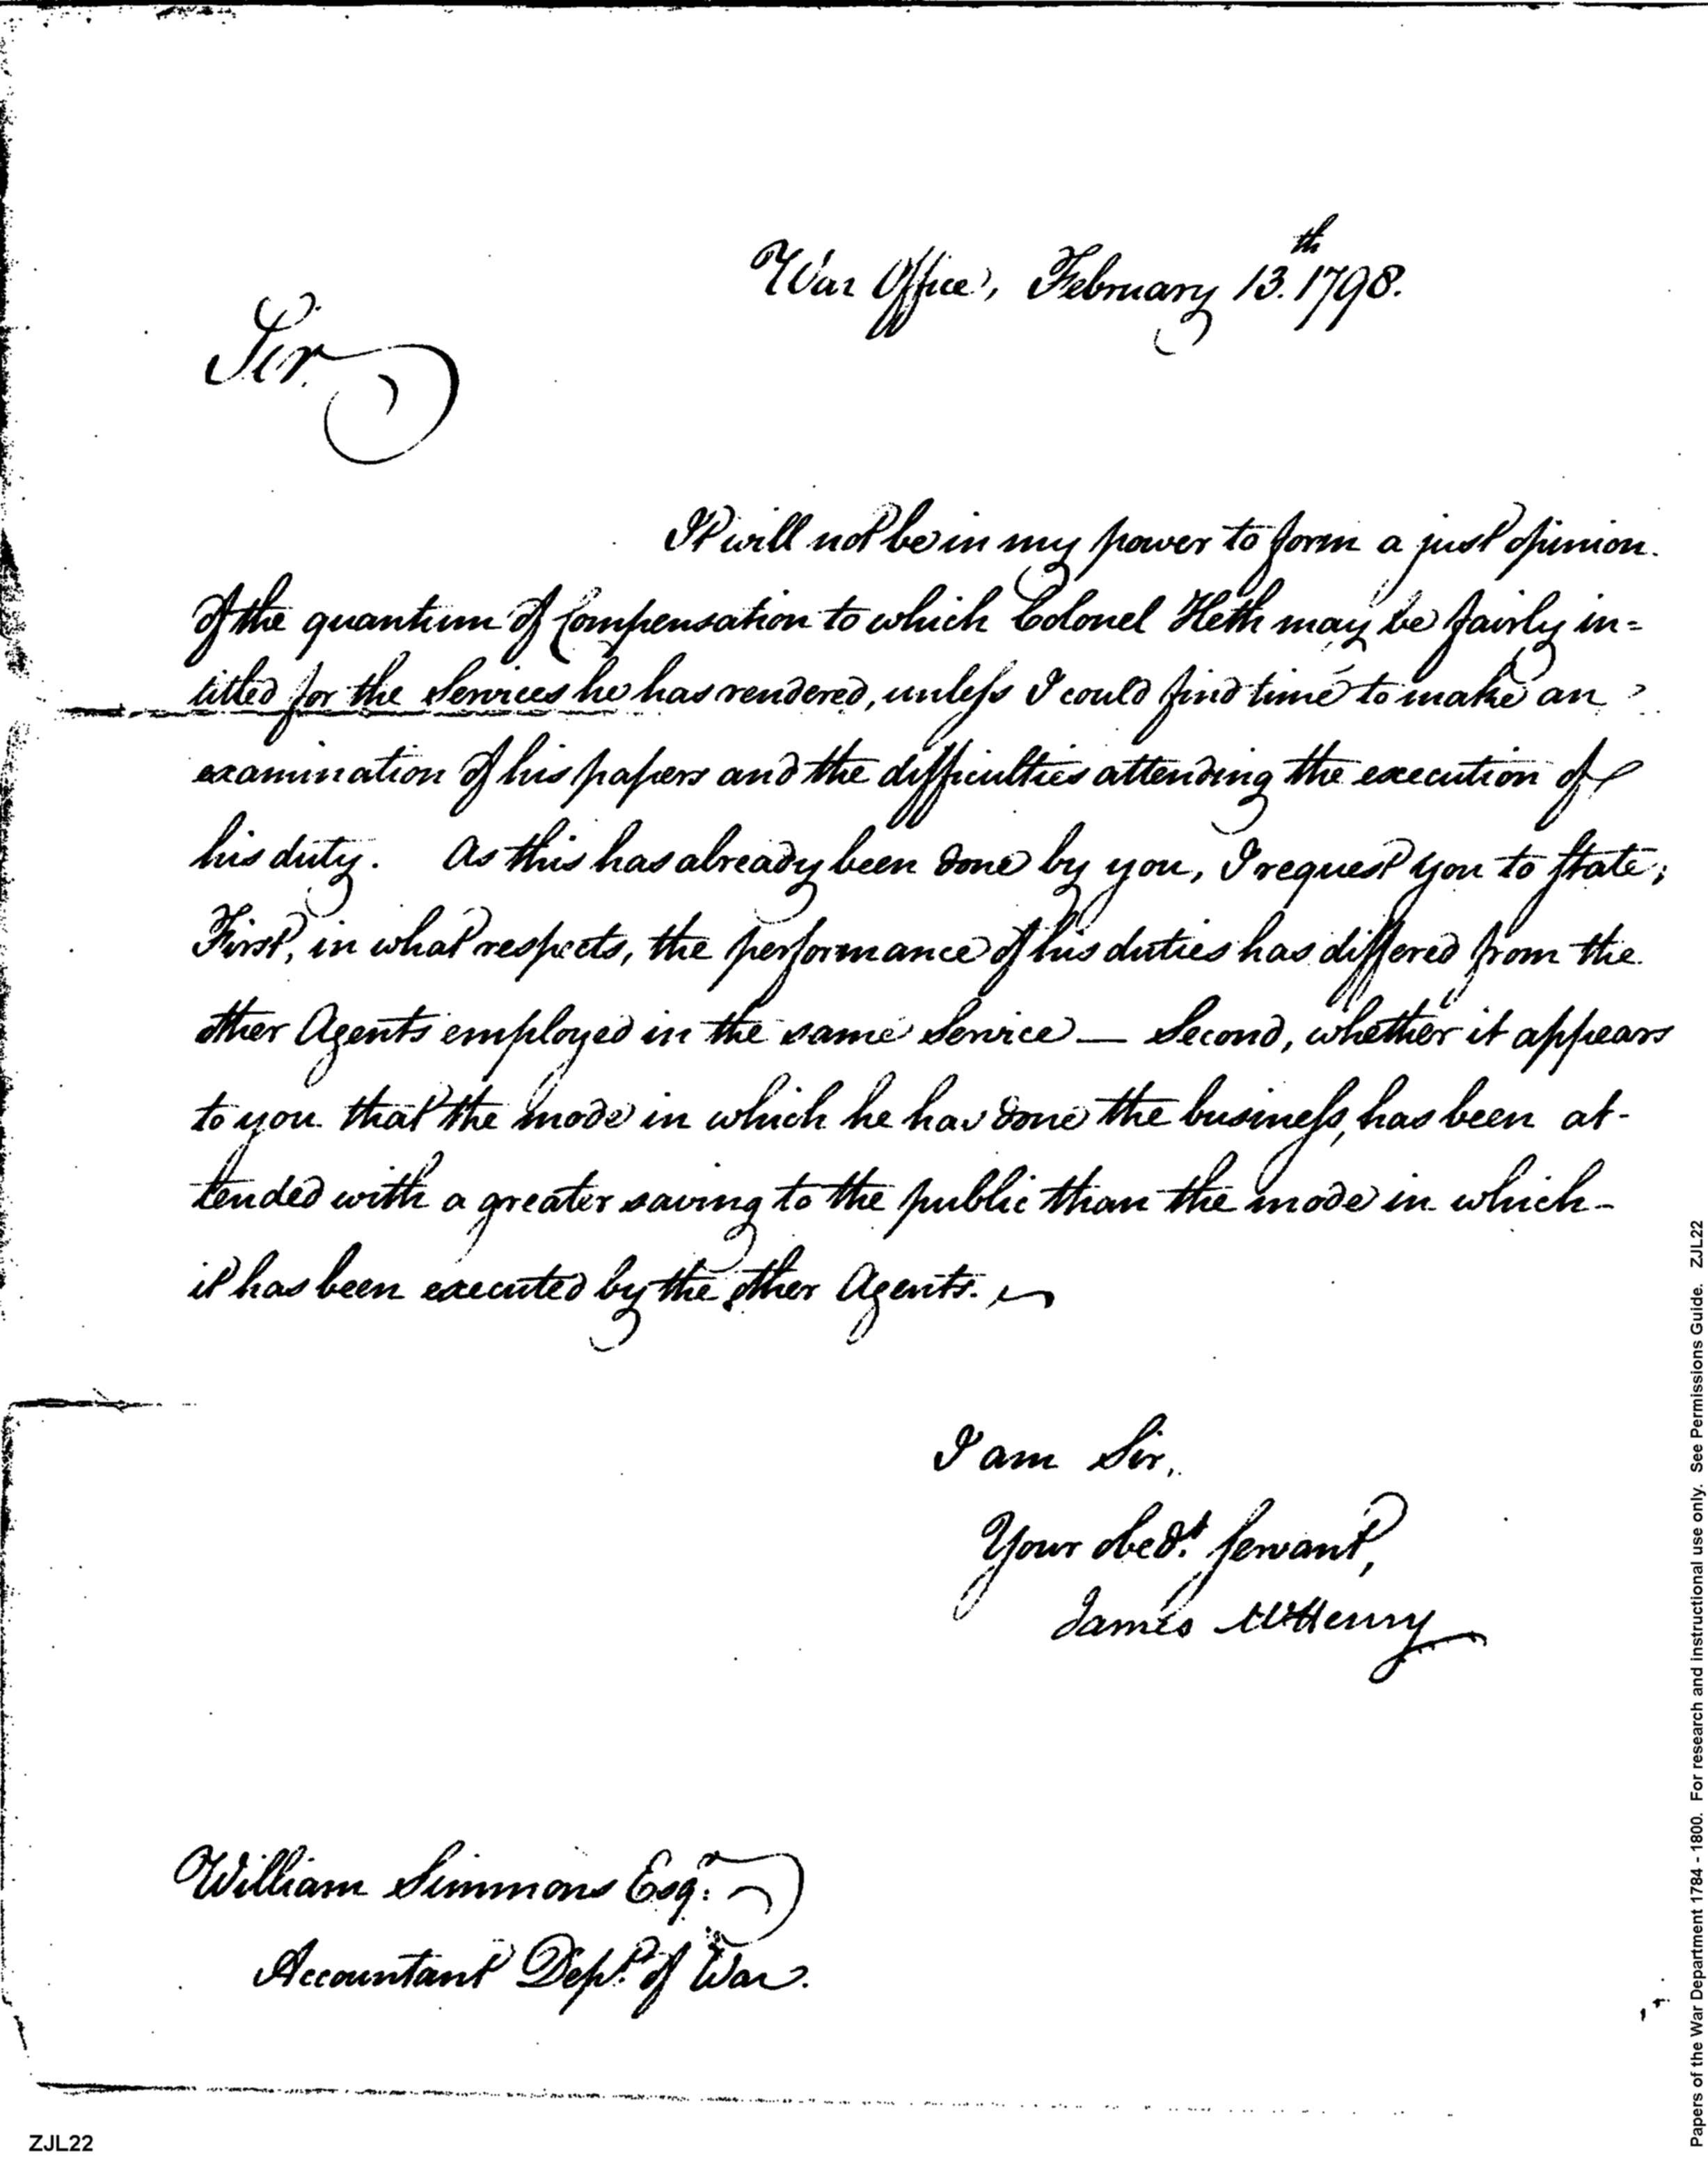 War Office, February 13.th 1798.
Sir.
It will not be in my power to form a just opinion
of the quantum of Compensation to which Colonel Heth may be fairly in=
titled for the Services he has rendered, unless I could find time to make an
examination of his papers and the difficulties attending the execution of
his duty. As this has already been done by you, I request you to State;
First, in what respects, the performance of his duties has differed from the
other Agents employed in the same Service — Second, whether it appears
to you that the mode in which he has done the business, has been at-
tended with a greater saving to the public than the mode in which-
it has been executed by the other Agents.
I am Sir,
Your obed.t Servant,
James McHenry
William Simmons Esqr.
Accountant Dept. of War.
ZJL22
Papers of the War Department 1784 - 1800. For research and instructional use only. See Permissions Guide. ZJL22